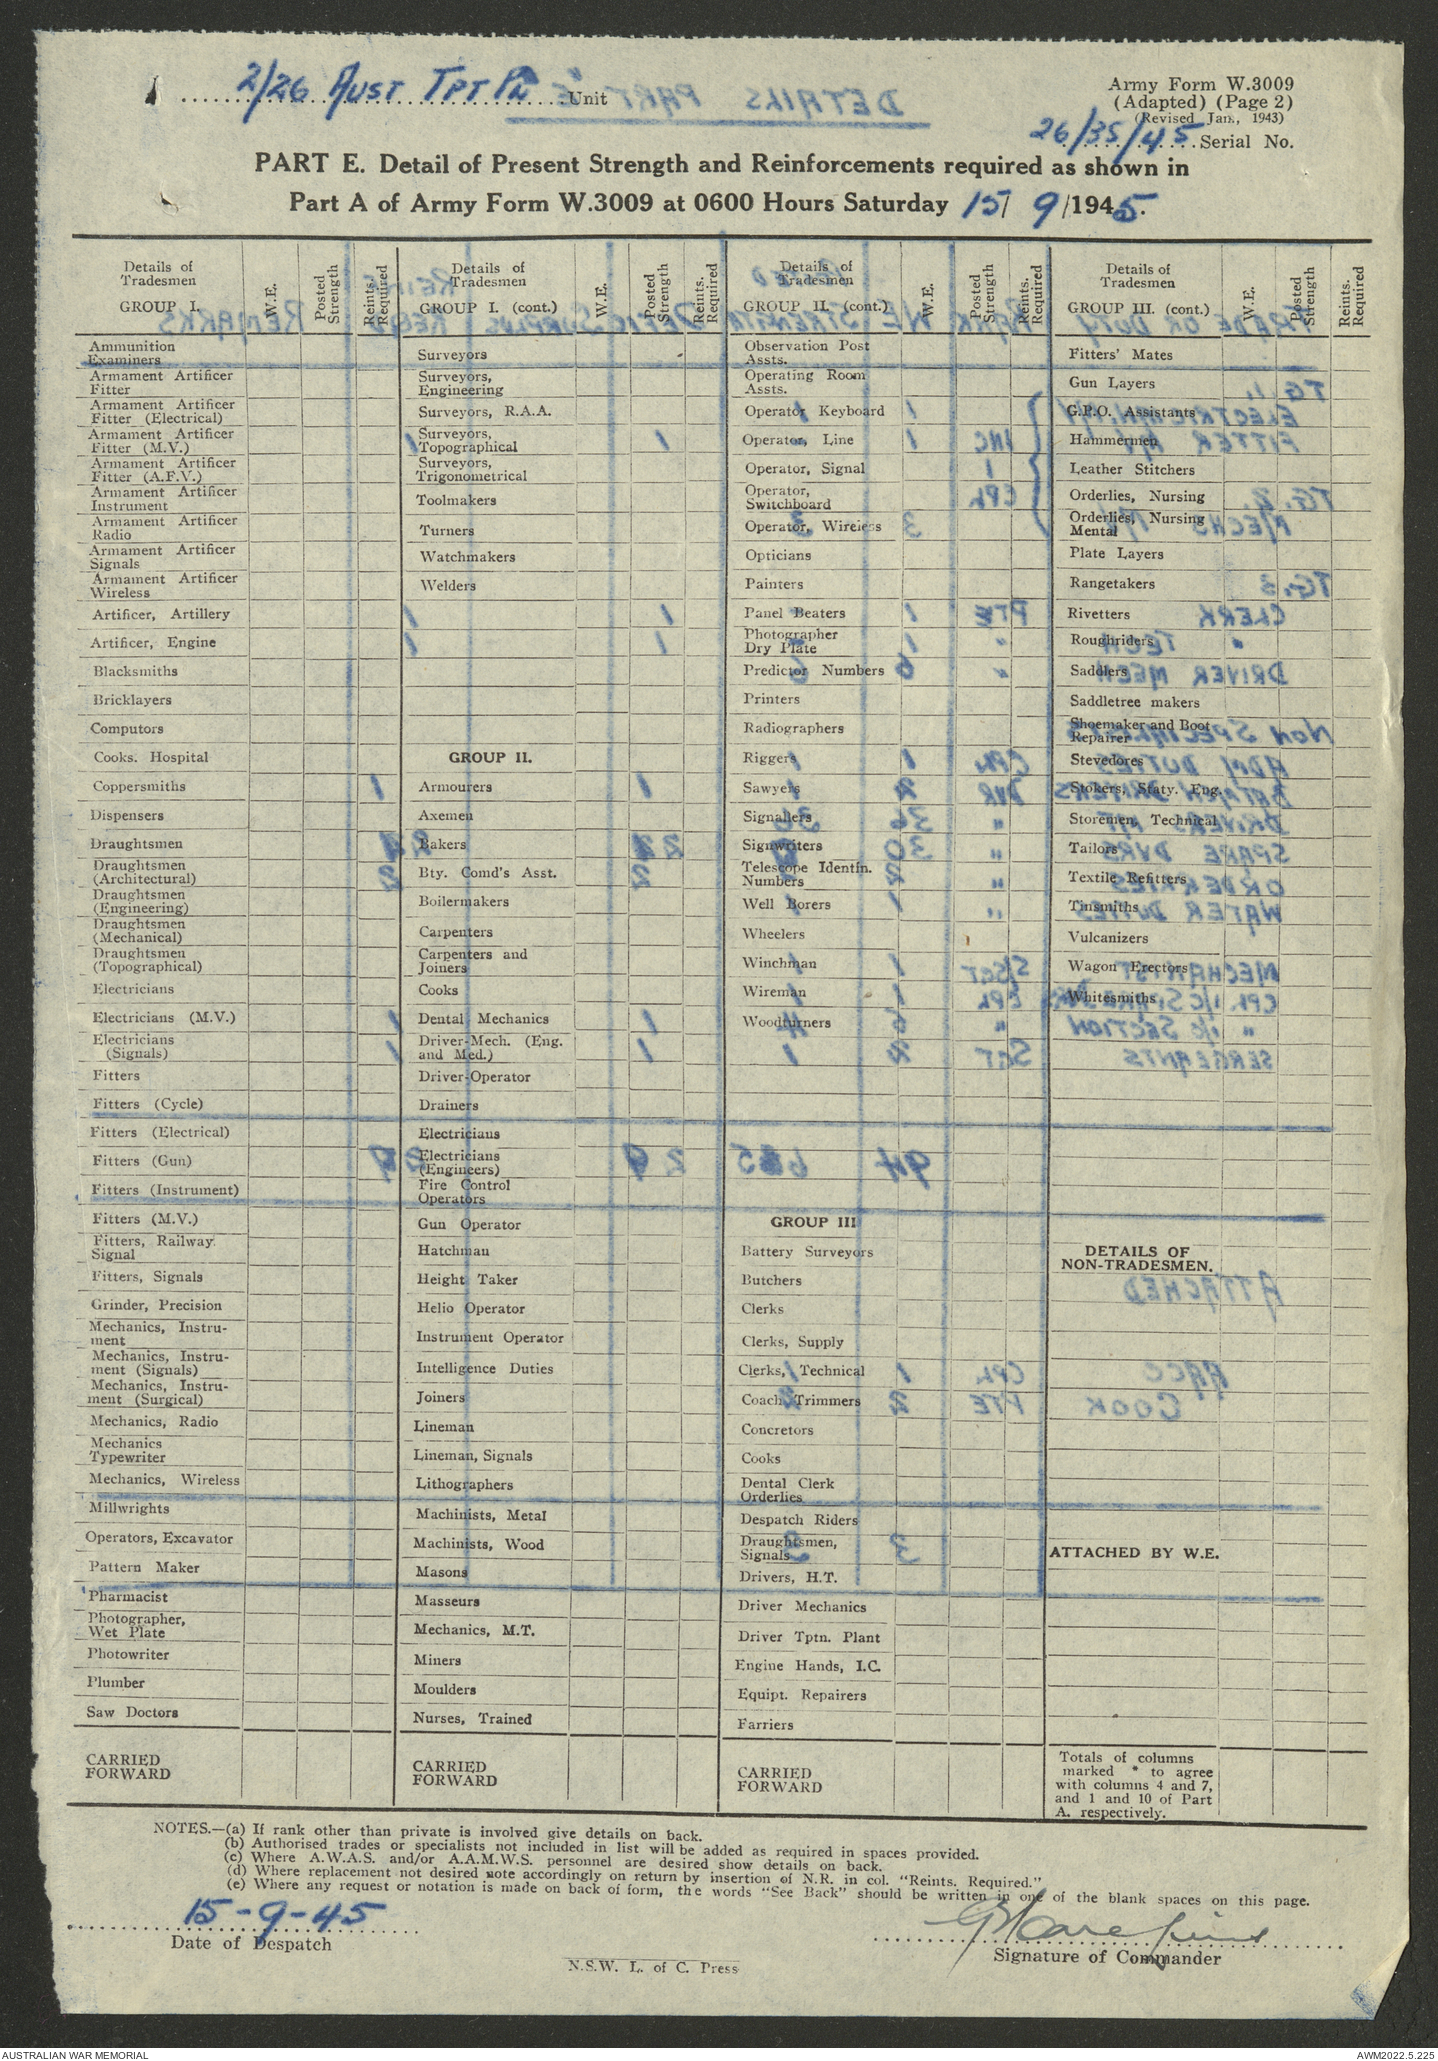 2/26 AUST TPT PL Unit
Army Form W.3009
(Adapted) (Page 2)
(Revised Jan., 1943)
26/35/45 Serial No.
PART E. Detail of Present Strength and Reinforcements required as shown in
Part A of Army Form W.3009 at 0600 Hours Saturday 15/ 9 /1945.
Details of Tradesmen
GROUP I.
W.E.
Posted Strength
Reints. Required
Ammunition Examiners
Armament Artificer Fitter
Armament Artificer Fitter (Electrical)
Armament Artificer Fitter (M.V.)
Armament Artificer Fitter (A.F.V.)
Armament Artificer Instrument
Armament Artificer Radio
Armament Artificer Signals
Armament Artificer Wireless
Artificer, Artillery
Artificer, Engine
Blacksmiths
Bricklayers
Computors
Cooks. Hospital
Coppersmiths
Dispensers
Draughtsmen
Draughtsmen (Architectural)
Draughtsmen (Engineering)
Draughtsmen (Mechanical)
Draughtsmen (Topographical)
Electricians
Electricians (M.V.)
Electricians (Signals)
Fitters
Fitters (Cycle)
Fitters (Electrical)
Fitters (Gun)
Fitters (Instrument)
Fitters (M.V.)
Fitters, Railway Signal
Fitters, Signals
Grinder, Precision
Mechanics, Instru-
ment
Mechanics, Instru-
ment (Signals)
Mechanics, Instru-
ment (Surgical)
Mechanics, Radio
Mechanics Typewriter
Mechanics, Wireless
Millwrights
Operators, Excavator
Pattern Maker
Pharmacist
Photographer, Wet Plate
Photowriter
Plumber
Saw Doctors
CARRIED FORWARD
Details of Tradesmen
GROUP I. (cont.)
W.E.
Posted Strength
Reints. Required
Surveyors
Surveyors, Engineering
Surveyors, R.A.A.
Surveyors, Topographical
Surveyors, Trigonometrical
Toolmakers
Turners
Watchmakers
Welders
GROUP II.
Armourers
Axemen
Bakers
Bty. Comd's Asst.
Boilermakers
Carpenters
Carpenters and Joiners
Cooks
Dental Mechanics
Driver-Mech. (Eng. and Med.)
Driver-Operator
Drainers
Electricians
Electricians (Engineers)
Fire Control Operators
Gun Operator
Hatchman
Height Taker
Helio Operator
Instrument Operator
Intelligence Duties
Joiners
Lineman
Lineman, Signals
Lithographers
Machinists, Metal
Machinists, Wood
Masons
Masseurs
Mechanics, M.T.
Miners
Moulders
Nurses, Trained
CARRIED FORWARD
Details of Tradesmen
GROUP II. (cont.)
W.E.
Posted Strength
Reints. Required
Observation Post Assts.
Operating Room Assts.
Operator Keyboard
Operator, Line
Operator, Signal
Operator, Switchboard
Operator, Wireless
Opticians
Painters
Panel Beaters
Photographer Dry Plate
Predictor Numbers
Printers
Radiographers
Riggers
Sawyers
Signallers
Signwriters
Telescope Identfn. Numbers
Well Borers
Wheelers
Winchman
Wireman
Woodturners
GROUP III
Battery Surveyors
Butchers
Clerks
Clerks, Supply
Clerks, Technical
Coach Trimmers
Concretors
Cooks
Dental Clerk Orderlies
Despatch Riders
Draughtsmen, Signals
Drivers, H.T.
Driver Mechanics
Driver Tptn. Plant
Engine Hands, I.C.
Equipt. Repairers
Farriers
CARRIED FORWARD
Details of Tradesmen
GROUP III. (cont.)
W.E.
Posted Strength
Reints. Required
Fitters' Mates
Gun Layers
G.P.O. Assistants
Hammermen
Leather Stitchers
Orderlies, Nursing
Orderlies, Nursing Mental
Plate Layers
Rangetakers
Rivetters
Roughriders
Saddlers
Saddletree makers
Shoemaker and Boot Repairer
Stevedores
Stokers, Staty. Eng.
Storemen, Technical
Tailors
Textile Refitters
Tinsmiths
Vulcanizers
Wagon Erectors
Whitesmiths
DETAILS OF NON-TRADESMEN.
ATTACHED BY W.E.
Totals of columns
marked * to agree
with columns 4 and 7,
and 1 and 10 of Part
A. respectively.
NOTES.—(a) If rank other than private is involved give details on back.
(b) Authorised trades or specialists not included in list will be added as required in spaces provided.
(c) Where A.W.A.S. and/or A.A.M.W.S. personnel are desired show details on back.
(d) Where replacement not desired note accordingly on return by insertion of N.R. in col. "Reints. Required."
(e) Where any request or notation is made on back of form, the words "See Back" should be written in one of the blank spaces on this page.
15-9-45
Date of Despatch
Signature of Commander
N.S.W. L. of C. Press
AUSTRALIAN WAR MEMORIAL
AWM2022.5.225